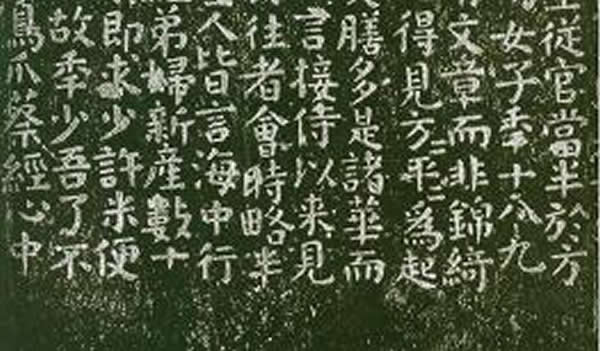 從官當半於方
女子年十八九
文章而非錦綺
得見方〻平〻為起
膳多是諸華而
言接侍以来見
往者會時略半
人皆言海中行
弟婦新產數十
即求少許米便
故年少吾了不
鳥爪蔡經心中